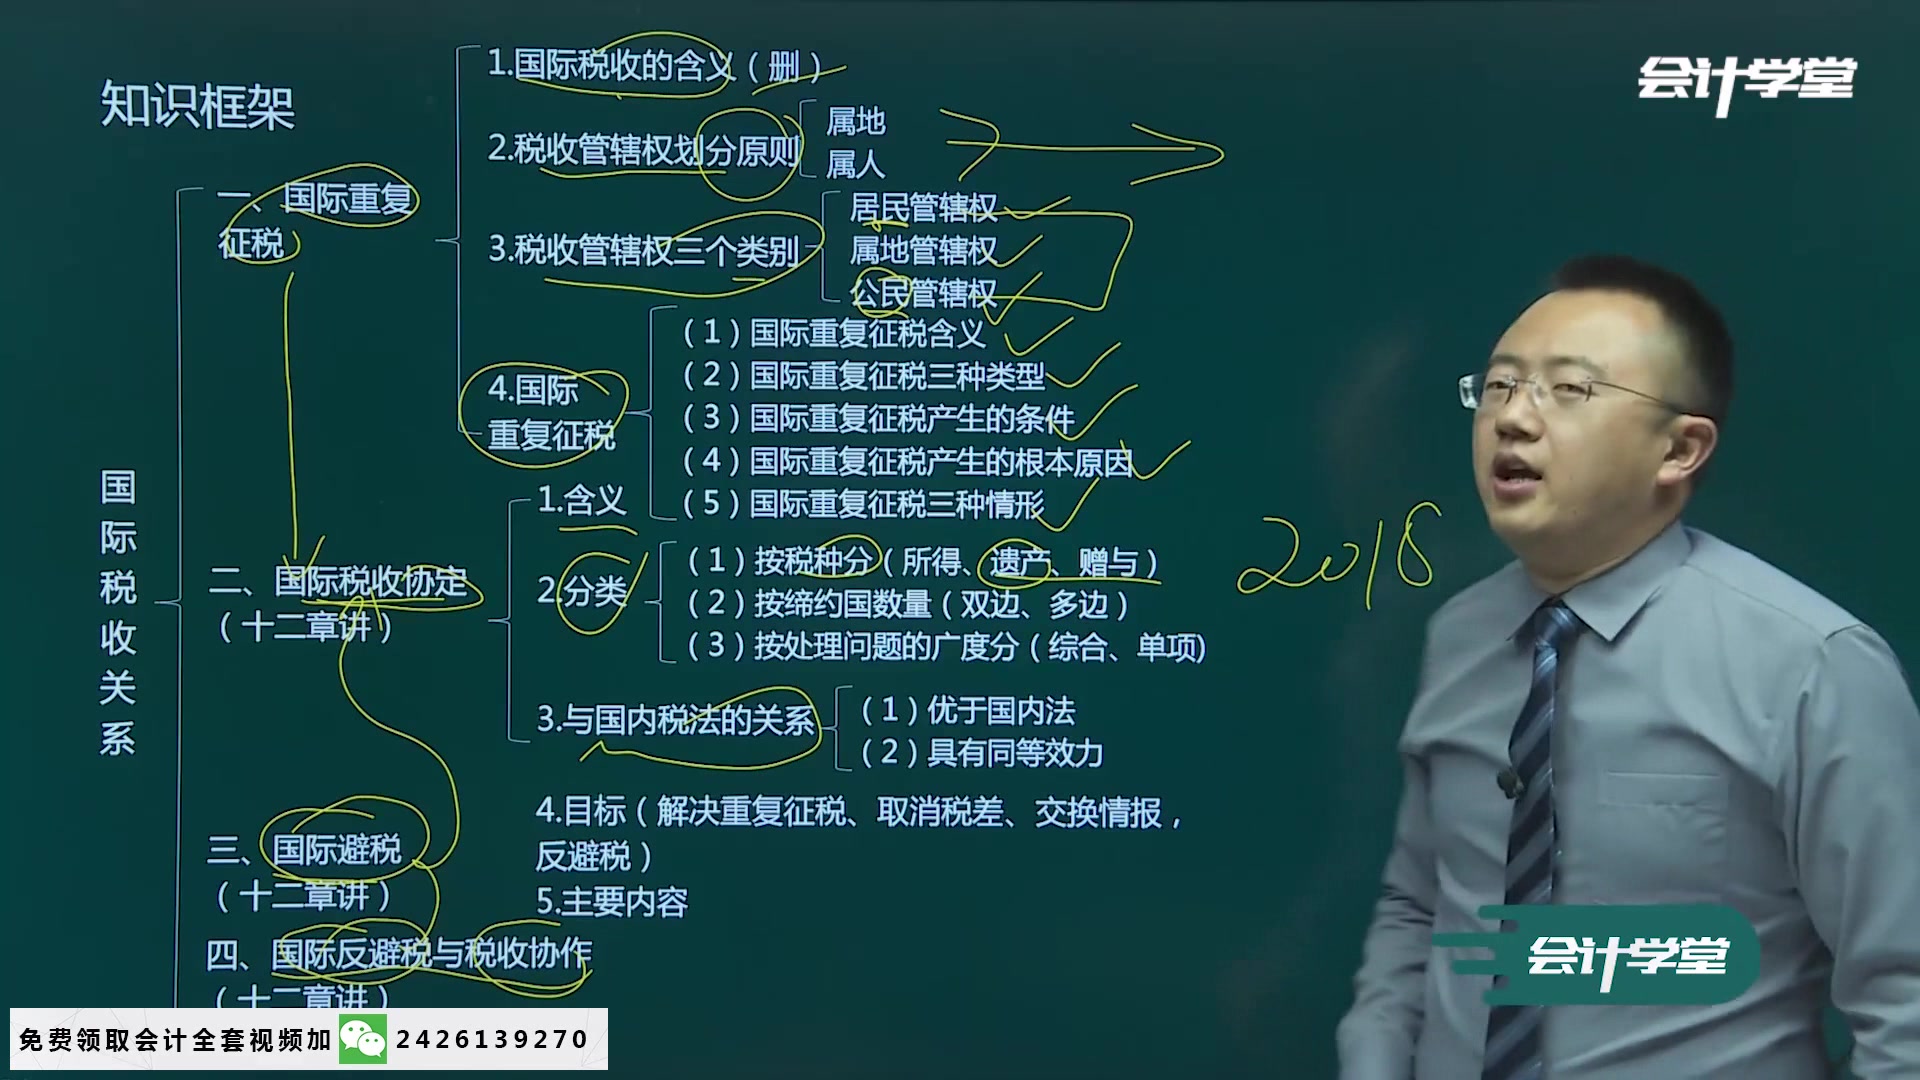 知识框架
会计学堂
国际税收关系
一、国际重复
征税
1.国际税收的含义（删）
2.税收管辖权划分原则
属地
属人
3.税收管辖权三个类别
居民管辖权
属地管辖权
公民管辖权
4.国际
重复征税
（1）国际重复征税含义
（2）国际重复征税三种类型
（3）国际重复征税产生的条件
（4）国际重复征税产生的根本原因
（5）国际重复征税三种情形
二、国际税收协定
（十二章讲）
1.含义
2.分类
（1）按税种分（所得、遗产、赠与）
（2）按缔约国数量（双边、多边）
（3）按处理问题的广度分（综合、单项)
3.与国内税法的关系
（1）优于国内法
（2）具有同等效力
4.目标（解决重复征税、取消税差、交换情报，
反避税）
5.主要内容
三、国际避税
（十二章讲）
四、国际反避税与税收协作
（十二章讲）
2018
会计学堂
免费领取会计全套视频加 2426139270